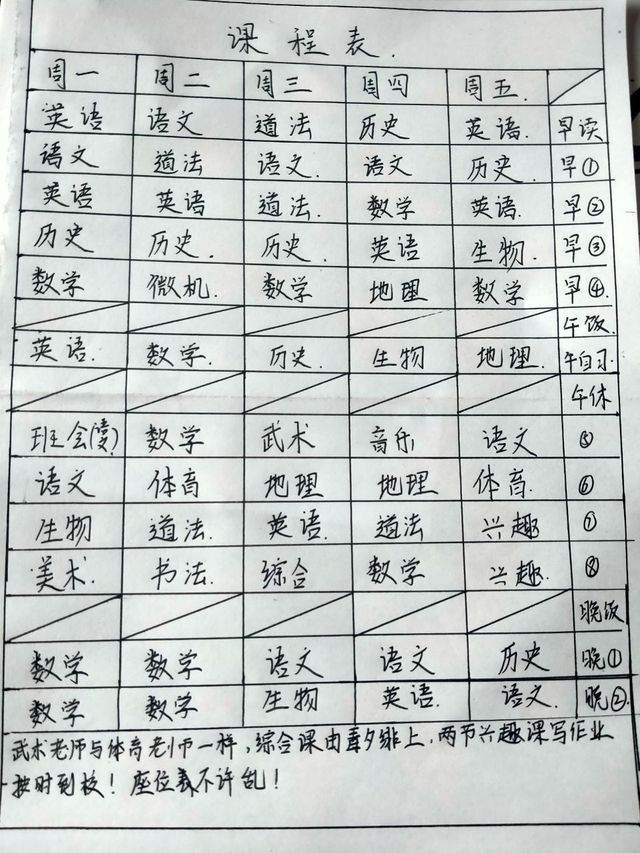 课程表.
周一 周二 周三 周四 周五.
英语 语文 道法 历史 英语. 早读
语文 道法 语文. 语文 历史. 早①
英语 英语 道法. 数学 英语. 早②
历史 历史. 历史. 英语 生物. 早③
数学 微机. 数学 地理 数学 早④.
午饭.
英语. 数学. 历史. 生物 地理. 午自习.
午休
班会() 数学 武术 音乐 语文 ⑤
语文 体育 地理 地理 体育. ⑥
生物 道法 英语 道法 兴趣 ⑦
美术. 书法. 综合 数学 兴趣. ⑧
晚饭
数学 数学 语文 语文 历史 晚①
数学 数学 生物 英语. 语文. 晚②.
武术老师与体育老师一样,综合课由上,两节兴趣课写作业
按时到校!座位表不许乱!